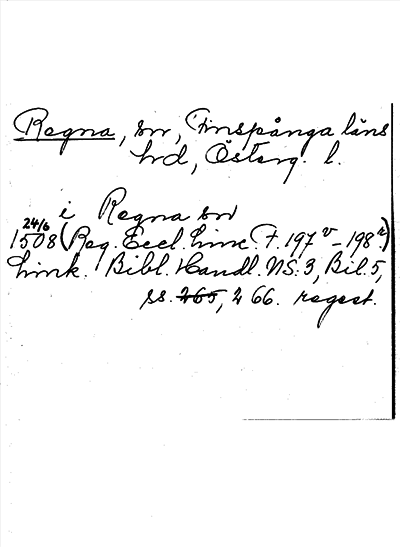 Regna, sn, Finspånga läns
hd, Österg. l.
i Regna sn
24/6
1508 (Reg. Eccl. Linc. F. 197v–198r)
Link. Bibl. Handl. NS. 3, Bil. 5,
ss. 265, 266. regest.